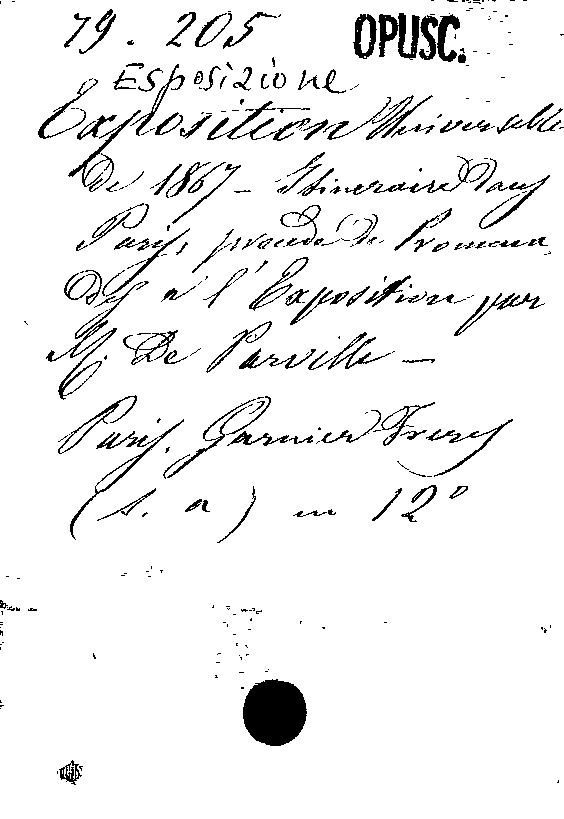 79. 205 OPUSC.
Esposizione
Exposition Universelle
de 1867 - Itineraire dans
Paris, précédé de Promena
des a l'Exposition par
M. De Parville -
Paris. Garnier Freres
(s. a) in 12º